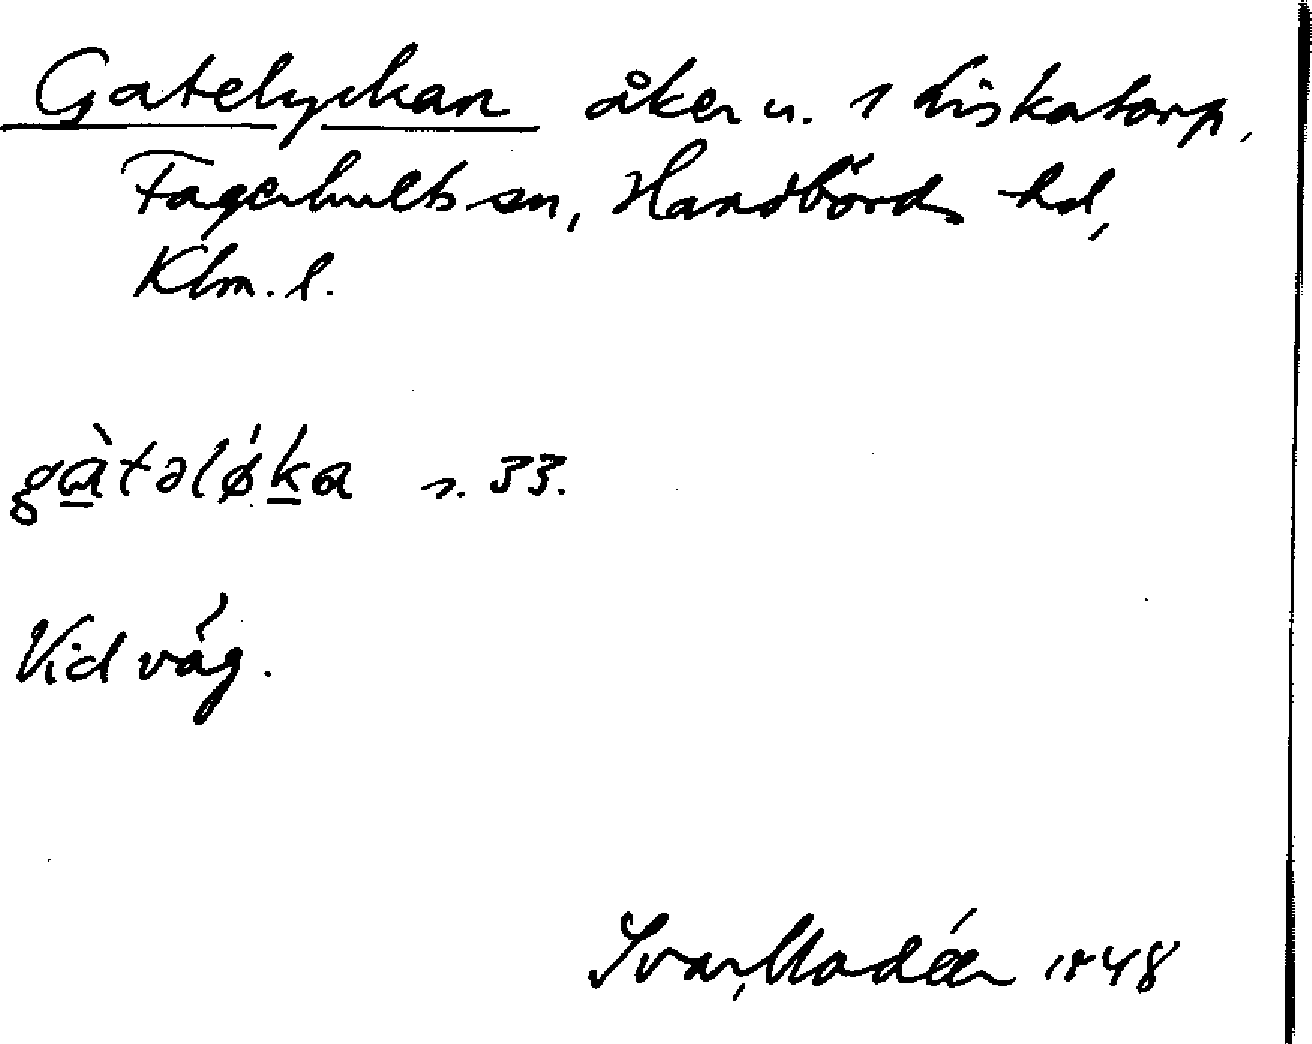 Gatelyckan åker u. 1 Liskatorp,
Fagerhults sn, Handbörds hd,
Klm. l.
gàtəlǿka s. 33.
Vid väg.
Ivar Modéer 1948